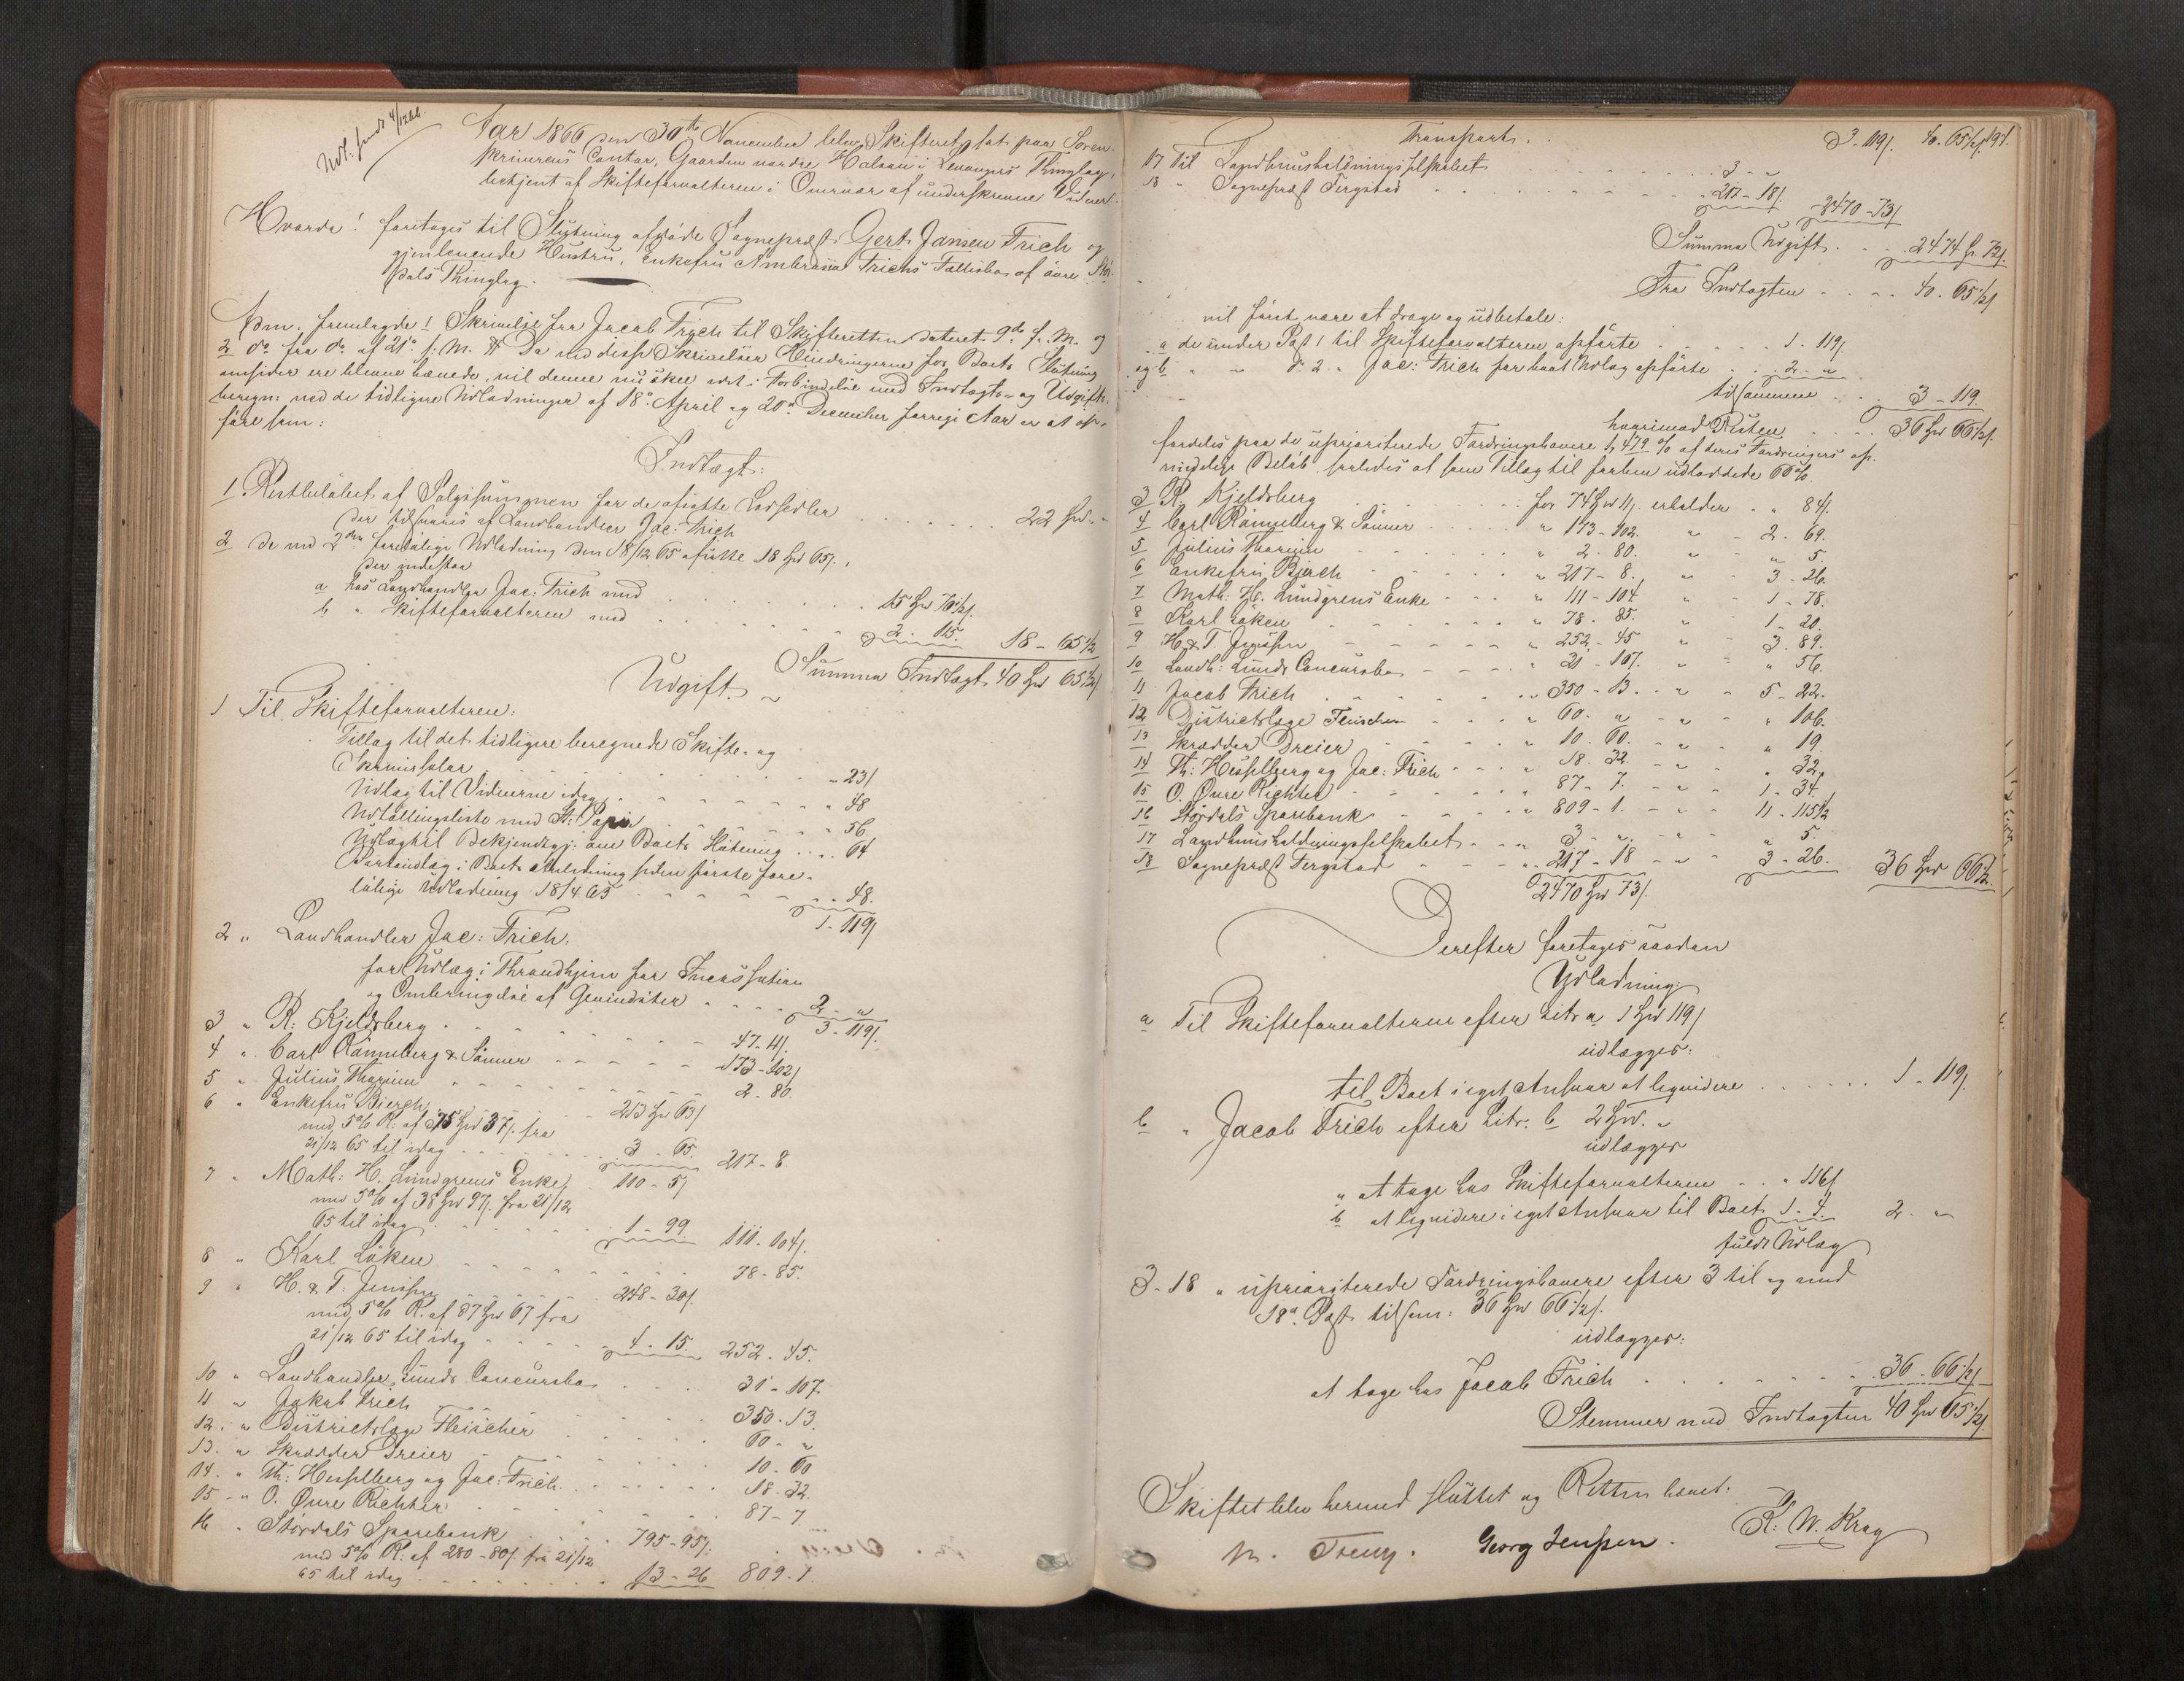 Udl: sendt 4/12 66.
Aar 1866 den 30te November blev Skifteret sat paa Soren-
skriverens Contor, Gaarden nordre Halsan i Levangers Thinglag,
betjent af Skifteforvalteren i Overvær af underskrevne Vidner.
Hvorda! foretages til Slutning afdøde Sognepræst Gert Jansen Frich og
gjenlevende Hustru, Enkefru Ambrosia Frichs Fællesbo af øvre Stør-
dals Thinglag.
Adm. fremlagde 1 Skrivelse fra Jacob Frich til Skifteretten dateret 9de f. M. og
2 do fra do af 21de f. M. Da ved disse Skrivelser Hindringerne for Boets Slutning
omsider ere blevne hævede, vil denne nu skee idet i Forbindelse med Indtægts- og Udgifts-
beregn: ved de tidligere Udlodninger af 18de April og 20de December forrige Aar er at op-
føre som:
Indtægt:
1 Restbeløbet af Salgssummen for de afsatte Lodsedler
der tilsvares af Landhandler Jac: Frich . . . . . . 22 Spd. "
2 De ved 2den foreløbige Udlodning den 18/12 65 afsatte 18 Spd 65 1/2,
der indestaa
a hos Landhandler Jac: Frich med . . . . . 15 Spd 70 1/2 s.
b " Skifteforvalteren med . . . . . 2 - 115. 18 - 65 1/2
Summa Indtægt 40 Spd 65 1/2 s
Udgift.
1 Til Skifteforvalteren:
Tillæg til det tidligere beregnede Skifte- og
Skriversalær . . . . . " 23 s
Udlæg til Vidnerne idag . . . . . " 48
Udlodningsliste med St: Papir . . . . . " 56
Udlæg til Bekjendtgj: om Boets Slutning . . . . 64
Portoudlæg i Boets Anledning siden første fore-
løbige Udlodning 18/4 65 . . . . . " 48.
1 - 119 s
2 " Landhandler Jac: Frich.
for Udlæg i Throndhjem for Incassation
og Ombringelse af Gevindster . . . . 2 - "
3 - 119 s.
3 " R: Kjeldsberg . . . . . 47 - 11 s.
4 " Carl Rønneberg & Sønner . . . . . 173 - 102 s
5 " Julius Thorium . . . . . 2 - 80.
6 " Enkefru Bjerch . . . . . 213 Spd 63 s
med 5% R: af 75 Spd 37 s. fra
21/12 65 til idag . . . . . 3 - 65. 217 - 8.
7 " Math: H. Lundgrens Enke . 110 - 5 s
med 5% af 38 Spd 97 s. fra 21/12
65 til idag . . . . . 1 - 99. 111 - 104 s.
8 " Karl Løken . . . . . 78 - 85.
9 " H. & F. Jenssen . . . . . 248 - 30 s.
med 5% R. af 87 Spd 67 fra
21/12 65 til idag . . . . . 4 - 15. 252 - 45.
10 " Landhandler Lunds Concursbo . . . . 31 - 107.
11 " Jakob Frich . . . . . 350 - 13.
12. " Districtslæge Fleischer . . . . . 60 - "
13. " Skrædder Dreier . . . . . 10 - 60
14. " Th: Hesselberg og Jac: Frich . . . . . 18 - 32.
15 - " O. Øvre Richter . . . . . 87 - 7.
16 " Størdals Sparebank . . . . 795 - 95 s.
med 5% R: af 280 - 80 s. fra 21/12
65 til idag . . . . . 13 - 26 809 - 1.
191.
Transport . . 3 - 119 s. 40. 65 1/2 s
17 Til Landhuusholdningsselskabet . . . . . 3 - "
18 " Sognepræst Tergstad . . . . . 217 - 18 s. 2470 - 73 s
Summa Udgift . . . 2474 Sp. 72 s.
Fra Indtægten . . . . 40. 65 1/2 s
vil først være at drage og udbetale:
a de under Post 1 til Skifteforvalteren opførte . . . . . 1 - 119 s.
og b " " do 2 " Jac: Frich for havt Udlæg opførte . . 2 - "
tilsammen . . 3 - 119.
hvorimod Resten . . . . 36 Spd 66 1/2 s.
fordeles paa de uprioriterede Fordringshavere 1,479 % af deres Fordringers op-
rindelige Beløb saaledes at som Tillæg til forhen udloddede 60%.
3 R. Kjeldsberg . . . . . for 74 Spd 11 s. erholder . . " 84 s.
4 Carl Rønneberg & Sønner . . . . . " 173 - 102. " - 2 - 69.
5 Julius Thorium . . . . . " 2 - 80. " - " 5
6 Enkefru Bjerch . . . . . " 217 - 8. " - 3 - 26.
7 Math: H. Lundgrens Enke . . . " 111 - 104. " - 1 - 78.
8 Karl Løken . . . . . " 78 - 85. " - 1 - 20.
9 H & F Jenssen . . . . . " 252 - 45 " - 3 - 89.
10 Landh: Lunds Concursbo . . . . " 31 - 107. " - " 56.
11 Jacob Frich . . . . . " 350 - 13. - " 5 - 22.
12 Districtslæge Fleischer . . . . " 60 - " - " " 106.
13 Skrædder Dreier . . . . . " 10 - 60. - " " 19
14 Th: Hesselberg og Jac: Frich . . . " 18 - 32. - " " 32.
15 O. Øvre Richter . . . . . " 87 - 7. - " 1 - 34.
16 Størdals Sparebank . . . . . " 809 - 1. - " 11 - 115 1/2
17 Landhuusholdningsselskabet . . . " 3 - " - " " 5.
18 Sognepræst Tergstad . . . . " 217 - 18 - " 3 - 26. 36 Spd 66 1/2.
2470 Spd 73 s.
Derefter foretages saadan
Udlodning:
a Til Skifteforvalteren efter Litr a 1 Spd 119 s
udlægges:
til Boet i eget Ansvar at liqvidere . . . . . . 1 - 119 s.
b " Jacob Frich efter Litr. b 2 Spd. "
udlægges
a at tage hos Skifteforvalteren . . " 116 s
b at liqvidere i eget Ansvar til Boet 1 - 4. 2 - "
fuldt Udlæg
3-18 " uprioriterede Fordringshavere efter 3 til og med
18de Post tilsam: 36 Spd 66 1/2 s.
udlægges:
at tage hos Jacob Frich . . . . . . . 36 - 66 1/2 s
Stemmer med Indtægten 40 Spd 65 1/2 s.
Skiftet blev hermed sluttet og Retten hævet.
K: W. Krag
Georg Jenssen.